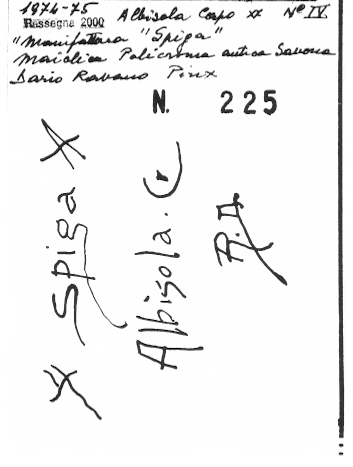 1974-75
Rassegna 2000 Albisola Corpo XX Nº IV
"Manifattura "Spiga"
Maiolica Policroma antica Savona
Dario Ravano Pinx
N. 225
X Spiga X
Albisola. C
R.D.